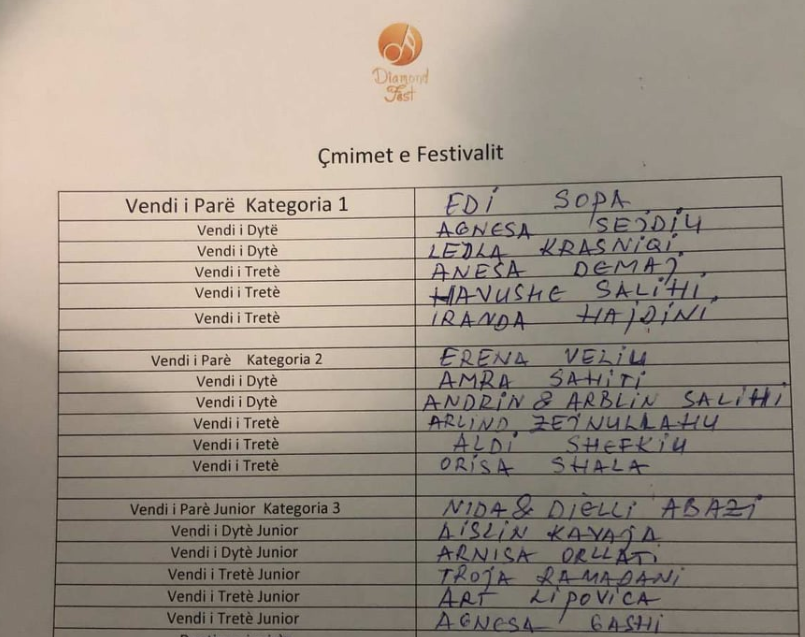 Diamond
Fest
Çmimet e Festivalit
Vendi i Parë Kategoria 1 EDI SOPA
Vendi i Dytë AGNESA SEJDIU
Vendi i Dytë LEDLA KRASNIQI
Vendi i Tretè ANESA DEMAJ
Vendi i Tretè HAVUSHE SALIHI
Vendi i Tretè IRANDA HAJDINI
Vendi i Parè Kategoria 2 ERENA VELIU
Vendi i Dytè AMRA SAHITI
Vendi i Dytè ANDRIN & ARBLIN SALIHI
Vendi i Tretè ARLIND ZEJNULLAHU
Vendi i Tretè ALDI SHEFKIU
Vendi i Tretè ORISA SHALA
Vendi i Parè Junior Kategoria 3 NIDA & DIELLI ABAZI
Vendi i Dytè Junior AISLIN KAVAJA
Vendi i Dytè Junior ARNISA ORLLATI
Vendi i Tretè Junior TROJA RAMADANI
Vendi i Tretè Junior ART LIPOVICA
Vendi i Tretè Junior AGNESA GASHI